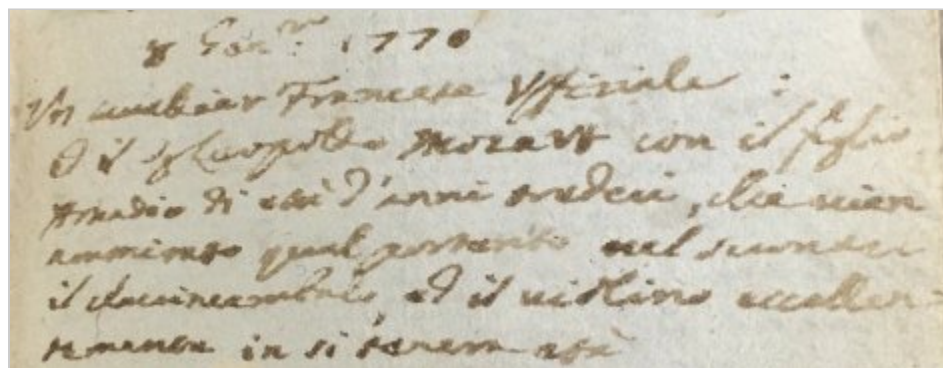 8 Genn.ro 1770
Un cavalier Francese Ufficiale :
ed il sig Leopoldo Mozart con il figlio
Amadio di età d'anni tredeci, che vien
ammirato qual portento nel suonare
il clavicembalo, ed il violino eccellen=
temente in sì tenera età